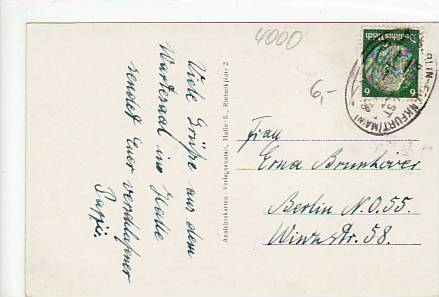 4000
6,-
Deutsches Reich
6 6
Viele Grüße aus dem
Wartesaal in Halle
sendet Euer verschlafner
Pappi
Ansichtskarten-Verlagsanstalt, Halle-S., Riebeckplatz 2
Frau
Erna Brunhöver
Berlin N.O.55.
Winsstr. 58.